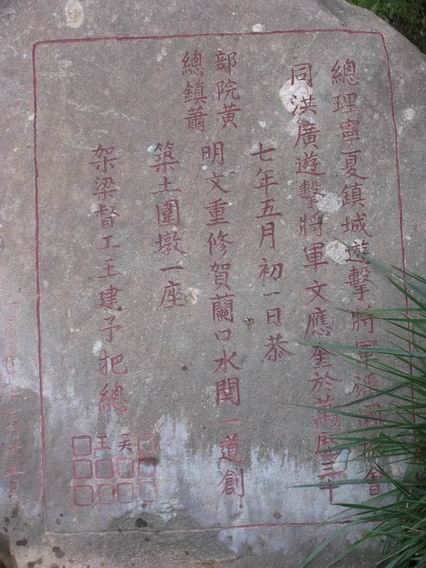 總理寧夏鎮城遊擊將軍會
同洪廣遊擊將軍文應奎於萬歷三十
七年五月初一日恭
部院黃
總鎮蕭
明文重修賀蘭口水関一道創
築土圍墩一座
架梁督工王建予把總
吴
王